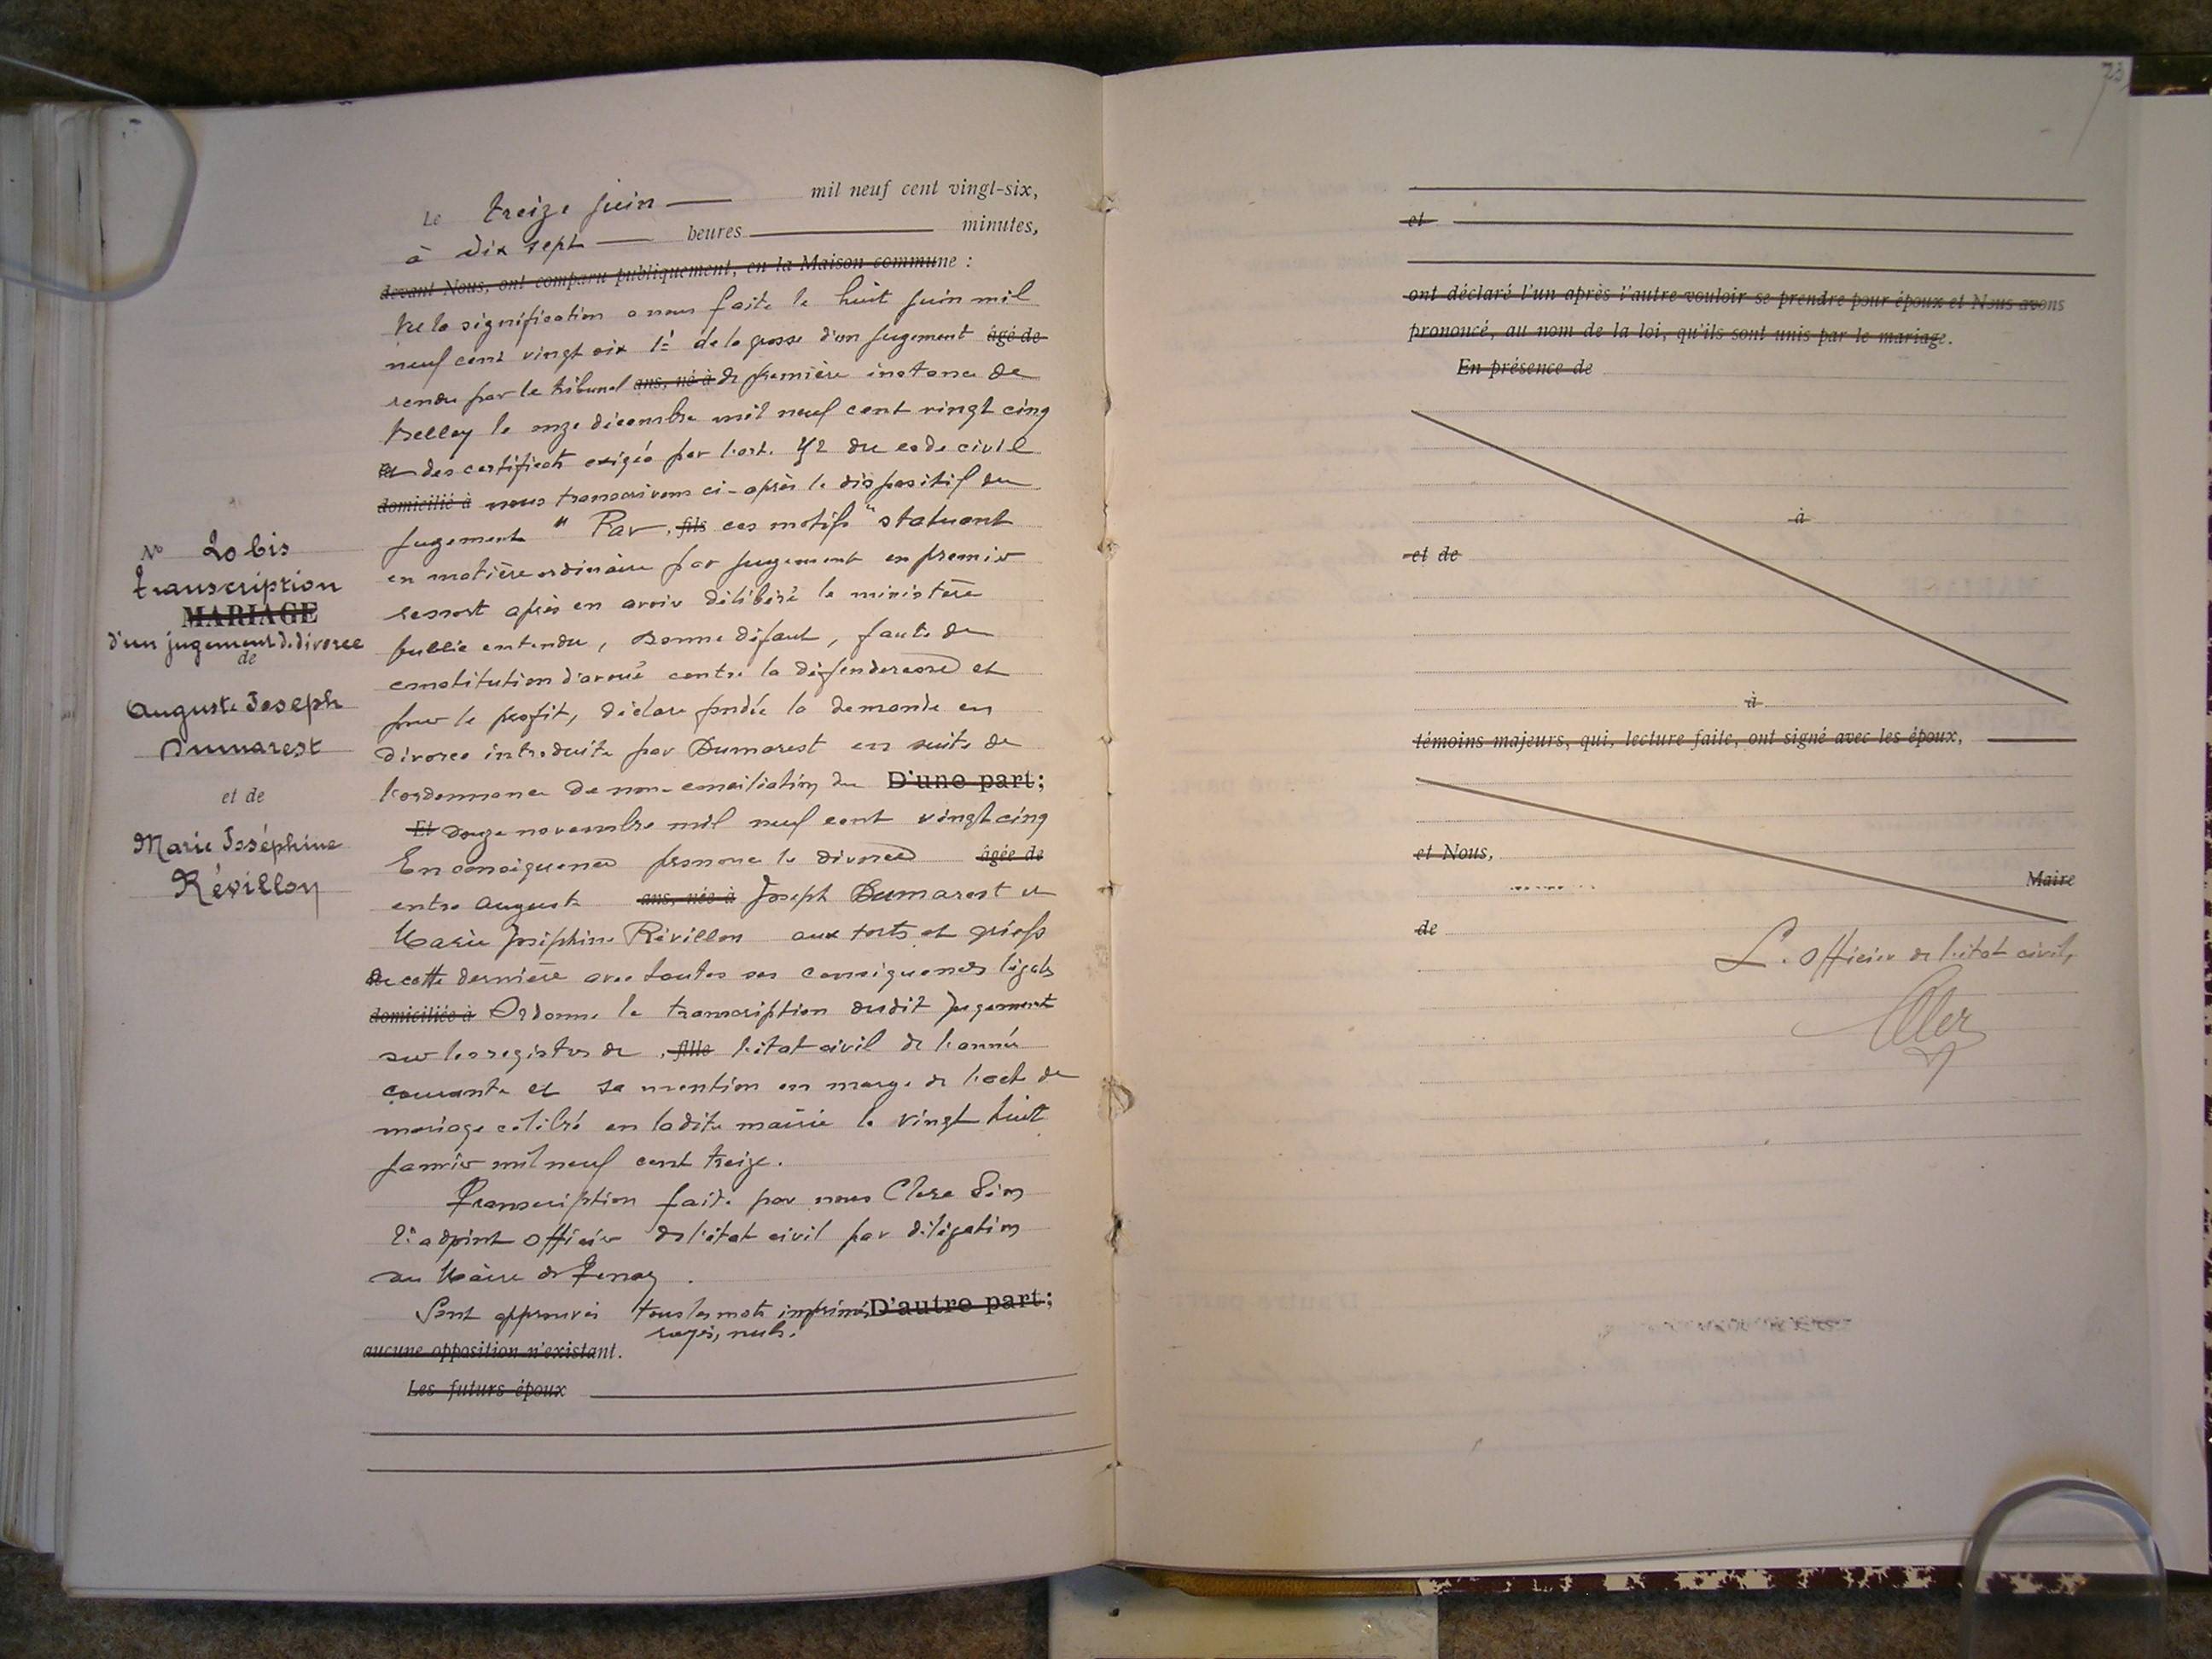 73
Le treize juin mil neuf cent vingt-six,
à dix sept heures minutes,
devant Nous, ont comparu publiquement, en la Maison commune :
Vu la signification a nous faite le huit juin mil
neuf cent vingt six 1º de la grosse d'un jugement âgé de
rendu par le tribunal ans, né à de première instance de
Belley le onze décembre mil neuf cent vingt cinq
et des certificats exigés par l'art. du code civil
domicilié à nous transcrivons ci-après le dispositif du
jugement " Par , fils ces motifs " statuant
en matière ordinaire par jugement en premier
ressort après en avoir délibéré le ministère
public entendu, Donne défaut, faute de
constitution d'avoué contre la défenderesse et
pour le profit, déclare fondée la demande en
divorce introduite par Dumarest en suite de
l'ordonnance de non-conciliation du D'une part;
Et douze novembre mil neuf cent vingt cinq
En conséquence prononce le divorce âgée de
entre Auguste ans, née à Joseph Dumarest et
Marie Joséphine Révillon aux torts et griefs
de cette dernière avec toutes ses conséquences légales
domiciliée à Ordonne la transcription dudit jugement
sur les registres de , fille l'état civil de l'année
courante et sa mention en marge de l'acte de
mariage célébré en ladite mairie le vingt huit
janvier mil neuf cent treize.
Transcription faite par nous Clerc
2e adjoint officier de l'état civil par délégation
du Maire de Tenay.
Sont approuvés tous les mots imprimés D'autre part;
rayés, nuls.
aucune opposition n'existant.
Les futurs époux
No 20 bis
transcription
MARIAGE
d'un jugement de divorce
de
Auguste Joseph
Dumarest
et de
Marie Joséphine
Révillon
et
ont déclaré l'un après l'autre vouloir se prendre pour époux et Nous avons
prononcé, au nom de la loi, qu'ils sont unis par le mariage.
En présence de
à
et de
à
témoins majeurs, qui, lecture faite, ont signé avec les époux,
et Nous,
Maire
de
L'officier de l'état civil,